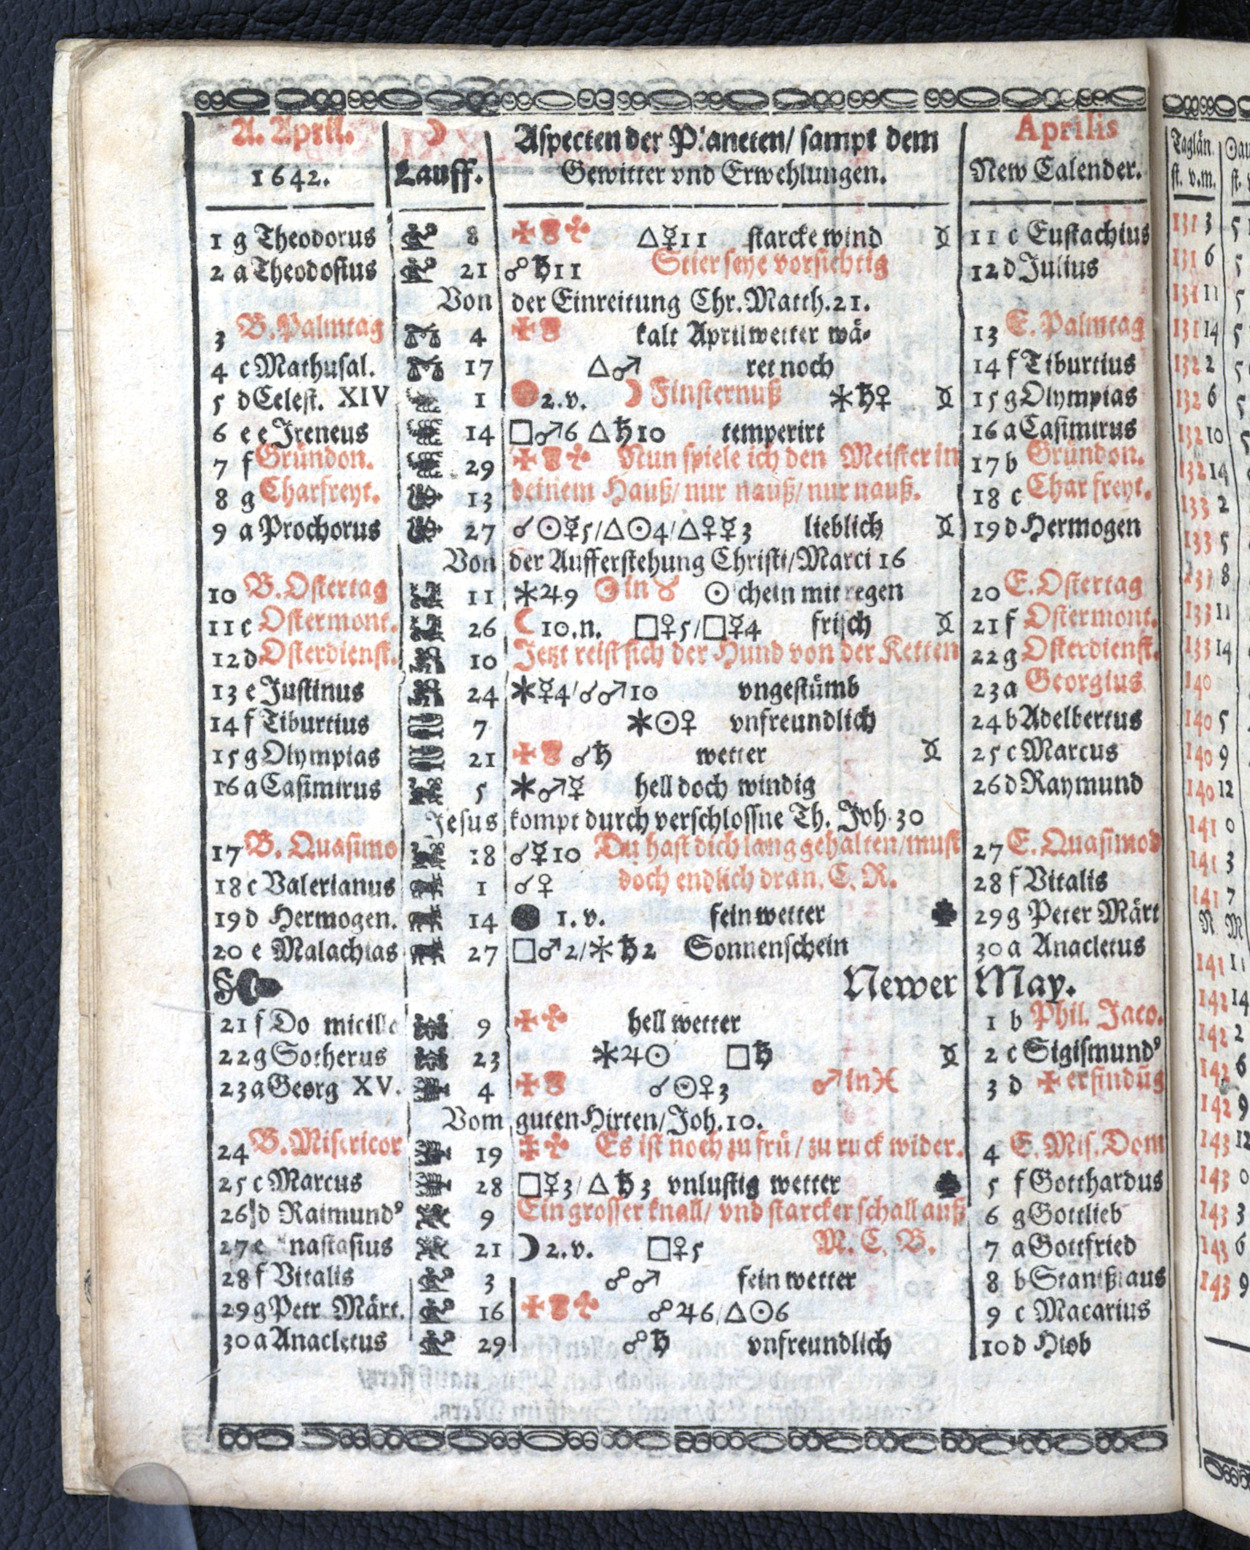 A. Aprll. ☽ Aspecten der Planeten/ sampt dem Aprilis
1642. Lauff. Gewitter vnd Erwehlungen. New Calender.
1 g Theodorus 8 △☿11 starcke wind 11 c Eustachius
2 a Theodosius 21 ☍♄11 Stier seye vorsichtig 12 d Julius
Von der Einreitung Chr. Matth. 21.
3 B. Palmtag 4 kalt Aprilwetter wä- 13 E. Palmtag
4 c Mathusal. 17 △♂ ret noch 14 f Tiburtius
5 d Celest. XIV 1 2.v. ☽ Finsternuß ⚹♄♀ 15 g Olympias
6 e e Jreneus 14 □♂6 △♄10 temperirt 16 a Casimirus
7 f Gründon. 29 Nun spiele ich den Meister in 17 b Gründon.
8 g Charfreyt. 13 deinem Hauß/ nur nauß/ nur nauß. 18 c Charfreyt.
9 a Prochorus 27 ☌☉☿5/△☉4/△♀☿3 lieblich 19 d Hermogen
Von der Aufferstehung Christi/Marci 16
10 B. Ostertag 11 ⚹♃9 ☉in♉ ☉chein mit regen 20 E. Ostertag
11 c Ostermont. 26 ☾10.n. □♀5/□☿4 frisch 21 f Ostermont.
12 d Osterdienst. 10 Jetzt reist sich der Hund von der Ketten 22 g Osterdienst.
13 e Justinus 24 ⚹☿4/☌♂10 vngestümb 23 a Georgius
14 f Tiburtius 7 ⚹☉♀ vnfreundlich 24 b Adelbertus
15 g Olympias 21 ☌♄ wetter 25 c Marcus
16 a Casimirus 5 ⚹♂☿ hell doch windig 26 d Raymund
Jesus kompt durch verschlossne Th. Joh. 30
17 B. Quasimo 18 ☌☿10 Du hast dich lang gehalten/must 27 E. Quasimod
18 c Valerianus 1 ☌♀ doch endlich dran. C. R. 28 f Vitalis
19 d Hermogen. 14 ● 1. v. fein wetter 29 g Peter Märt
20 e Malachias 27 □♂2/⚹♄2 Sonnenschein 30 a Anacletus
Newer May.
21 f Do micille 9 hell wetter 1 b Phil. Jaco.
22 g Sotherus 23 ⚹♃☉ □♄ 2 c Sigismundꝰ
23 a Georg XV. 4 ☌☉♀3 ♂in♓ 3 d ✠ erfindūg
Vom guten Hirten/Joh. 10.
24 B. Misericor 19 Es ist noch zu frü/ zu ruck wider. 4 E. Mis. Dom
25 c Marcus 28 □☿3/△♄3 vnlustig wetter 5 f Gotthardus
26 d Raimundꝰ 9 Ein grosser knall/ vnd starcker schall auß 6 g Gottlieb
27 e nastasius 21 ☽2.v. □♀5 M. C. B. 7 a Gottfried
28 f Vitalis 3 ☍♂ fein wetter 8 b Stanißlaus
29 g Petr. Märt. 16 ☍♃6/△☉6 9 c Macarius
30 a Anacletus 29 ☍♄ vnfreundlich 10 d Hiob
Taglän.
st. v.m.
13 1 3
13 1 6
13 1 11
13 1 14
13 2 2
13 2 6
13 2 10
13 2 14
13 3 2
13 3 5
13 3 8
13 3 11
13 3 14
14 0
14 0 5
14 0 9
14 0 12
14 1 0
14 1 3
14 1 7
14 1 11
14 2 14
14 2 2
14 2 6
14 2 9
14 3 12
14 3 0
14 3 3
14 3 6
14 3 9